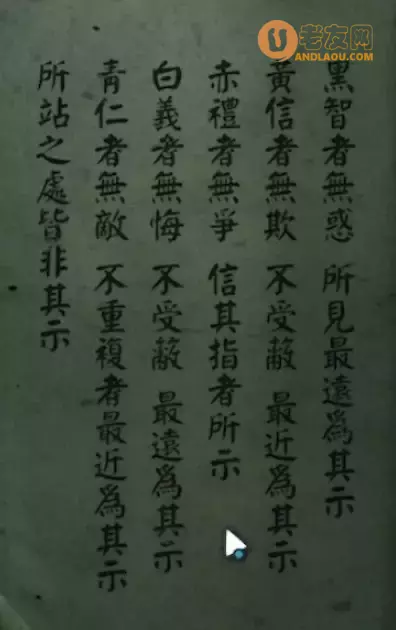 老友网
ANDLAOU.COM
黑智者無惑 所見最遠為其示
黃信者無欺 不受蔽 最近為其示
赤禮者無爭 信其指者所示
白義者無悔 不受蔽 最遠為其示
青仁者無敵 不重複者最近為其示
所站之處皆非其示